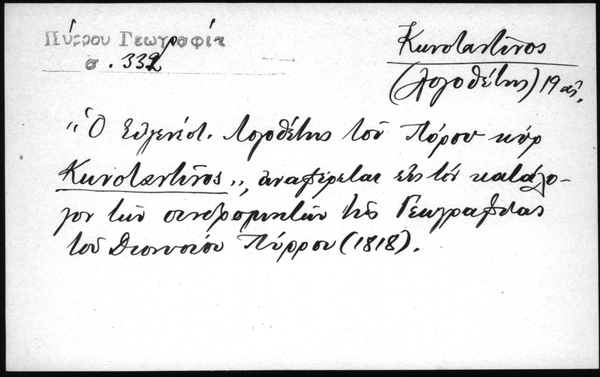 Πύρρου Γεωγραφία
σ. 332
Κωνσταντῖνος
(λογοθέτης) 19 αἰ.
"Ὁ Εὐγενέστ. Λογοθέτης τοῦ Πόρου κὺρ
Κωνσταντῖνος", ἀναφέρεται εἰς τὸν κατάλο-
γον τῶν συνδρομητῶν τῆς Γεωγραφίας
τοῦ Διονυσίου Πύρρου (1818).